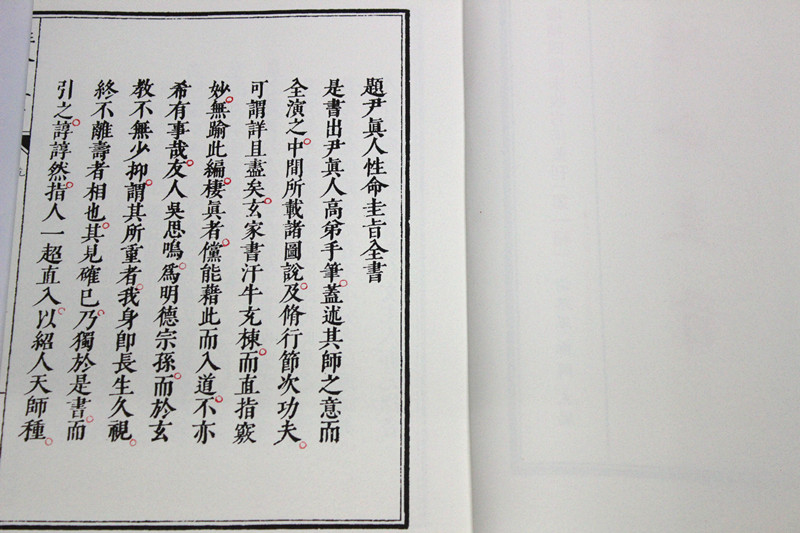 題尹眞人性命圭旨全書
是書出尹眞人高弟手筆。蓋述其師之意而
全演之。中間所載諸圖說。及脩行節次功夫。
可謂詳且盡矣。玄家書汗牛充棟。而直指竅
妙。無踰此編。棲眞者。儻能藉此而入道。不亦
希有事哉。友人吳思鳴。爲明德宗孫。而於玄
教不無少抑。謂其所重者。我身卽長生久視。
終不離壽者相也。其見確已。乃獨於是書。而
引之。諄諄然。指人一超直入。以紹人天師種。